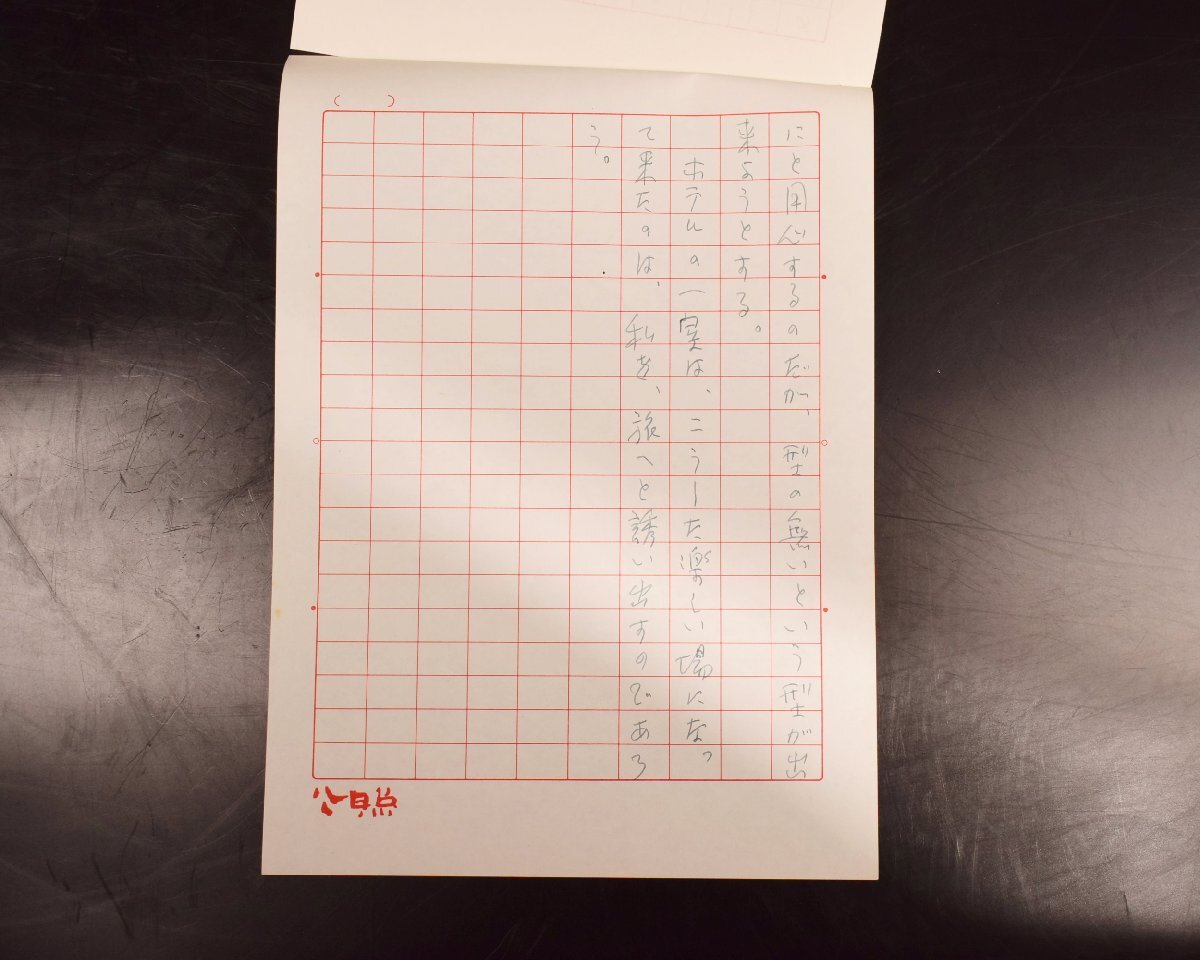 にと用心するのだが、型の無いという型が出
来ようとする。
ホテルの一室は、こうした楽しい場になっ
て来たのは、私を、旅へと誘い出すのであろ
う。